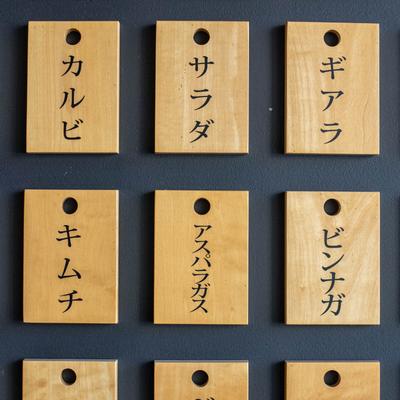 カルビ
サラダ
ギアラ
キムチ
アスパラガス
ビンナガ